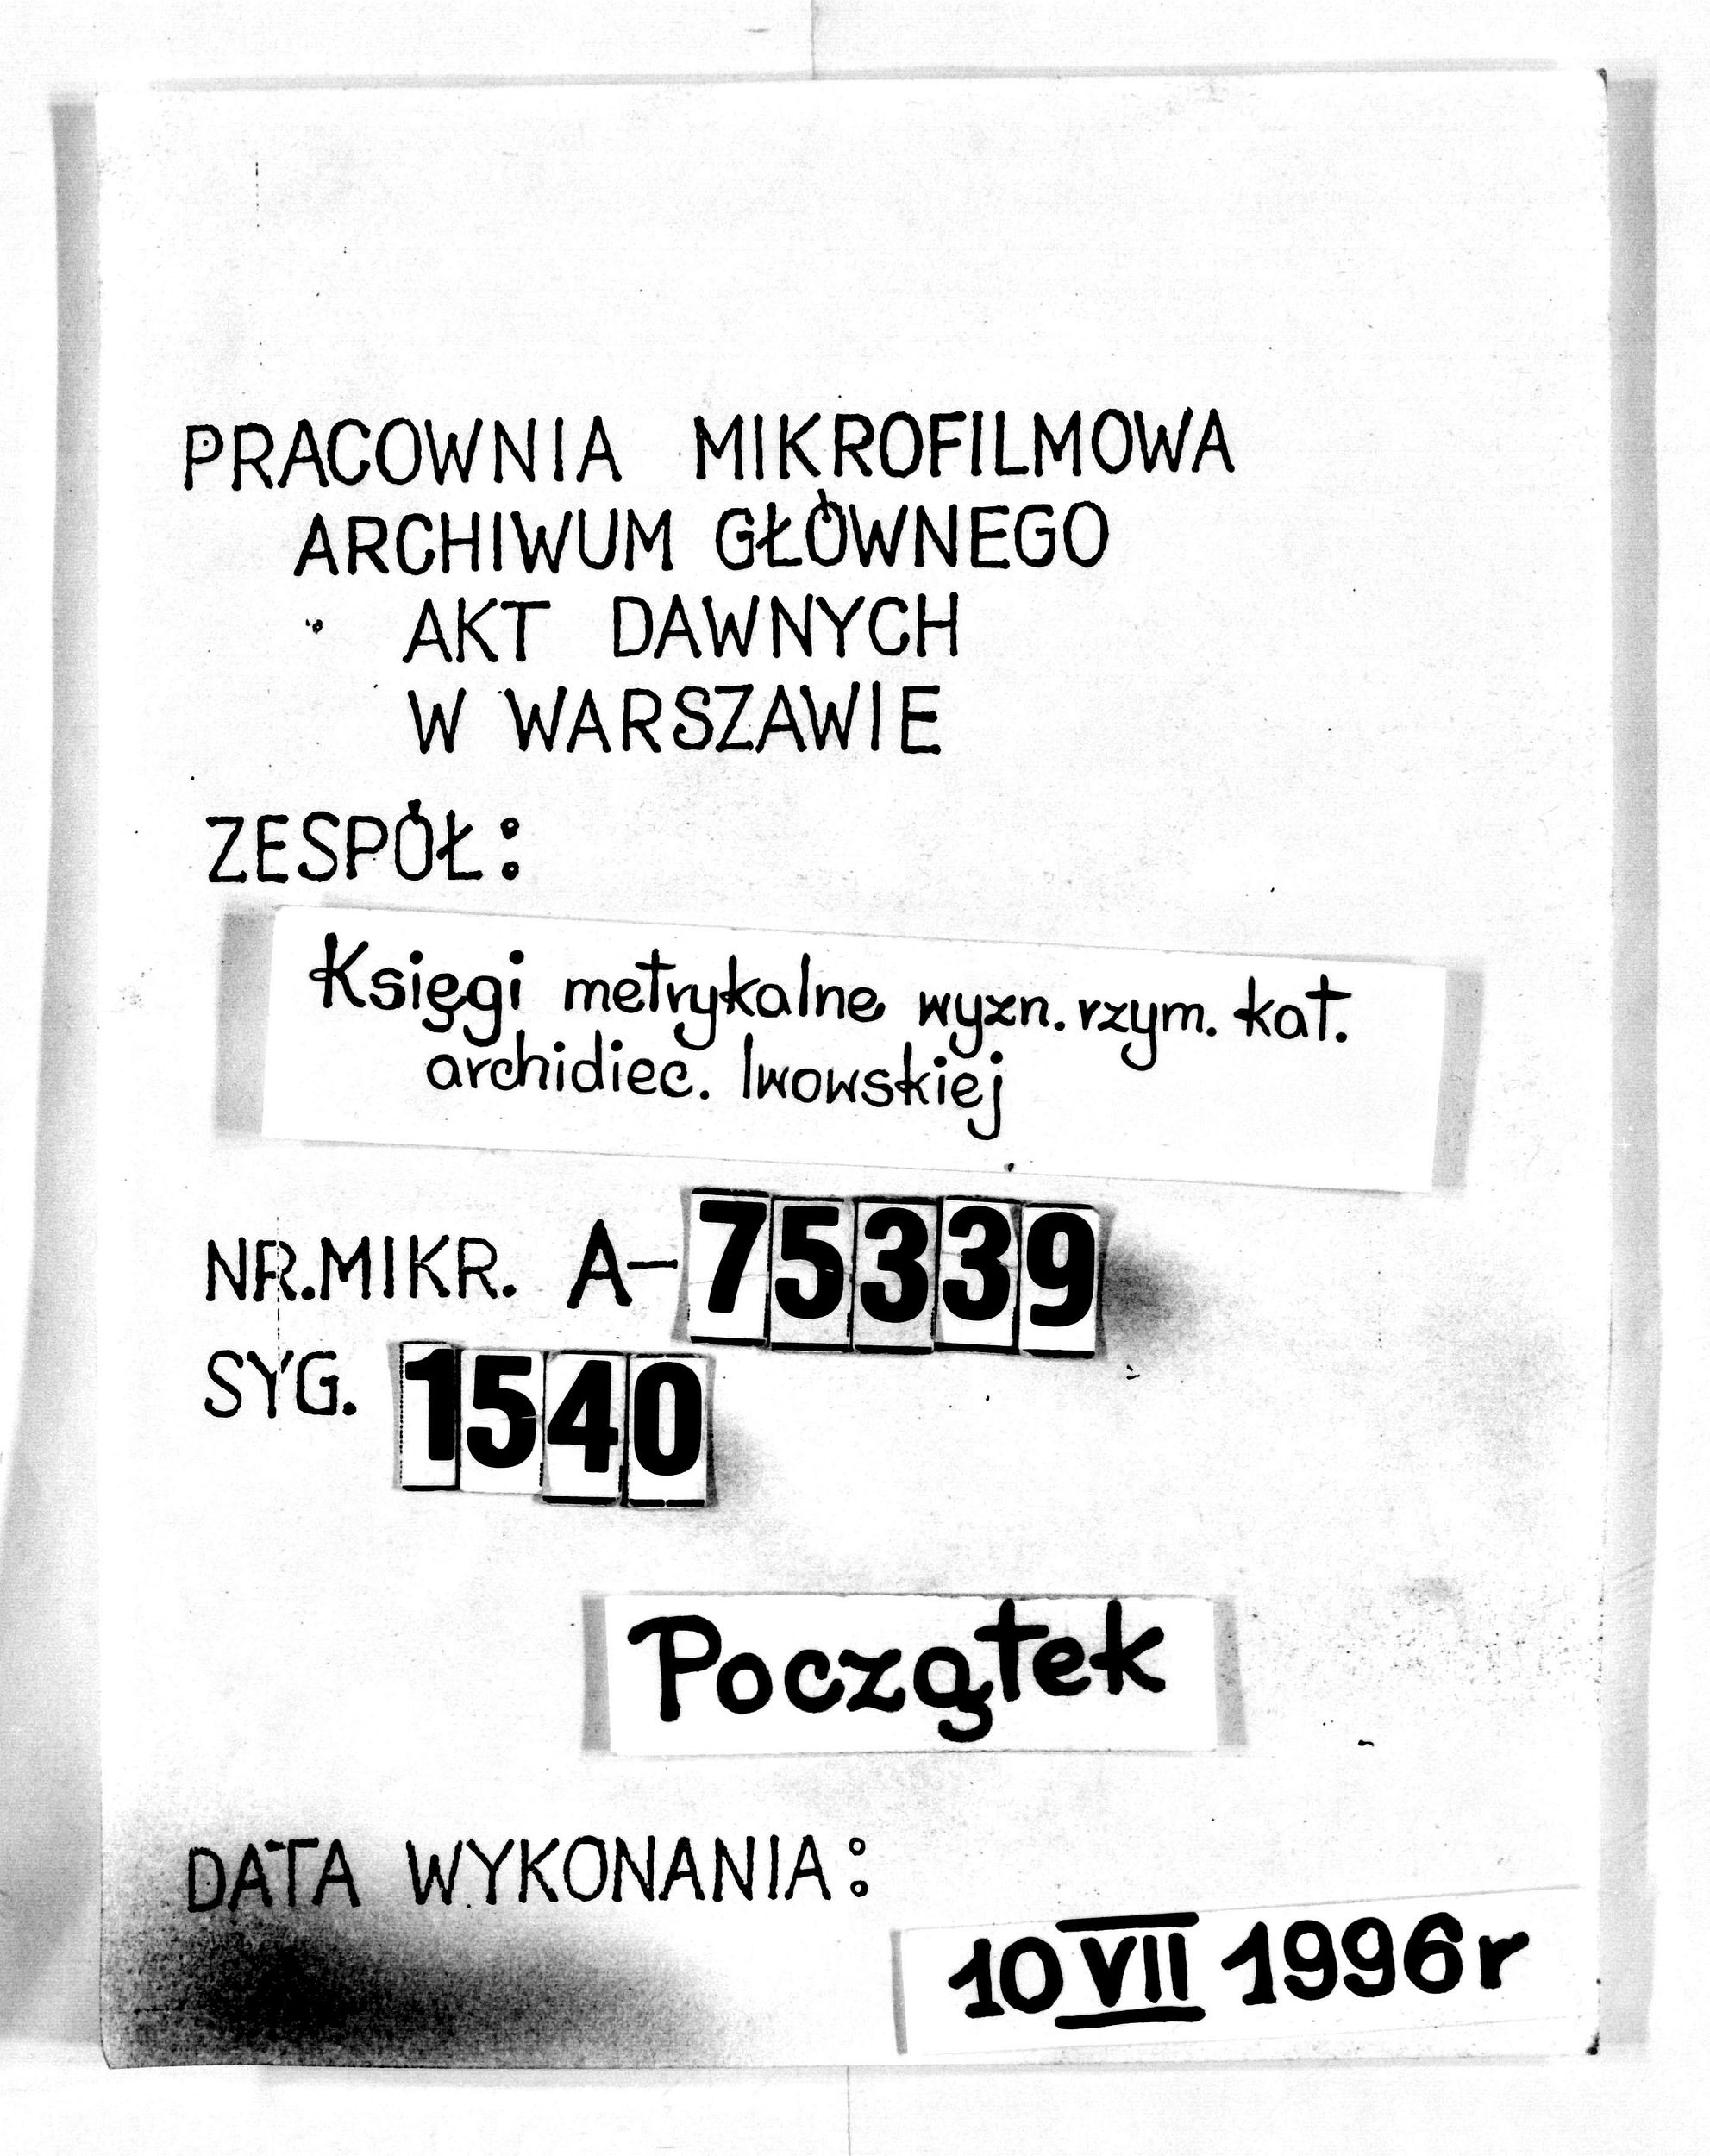 PRACOWNIA MIKROFILMOWA
ARCHIWUM GŁÓWNEGO
AKT DAWNYCH
W WARSZAWIE
ZESPÓŁ:
Księgi metrykalne wyzn. rzym. kat.
archidiec. lwowskiej
NR.MIKR. A-75339
SYG. 1540
Początek
DATA WYKONANIA:
10 VII 1996r